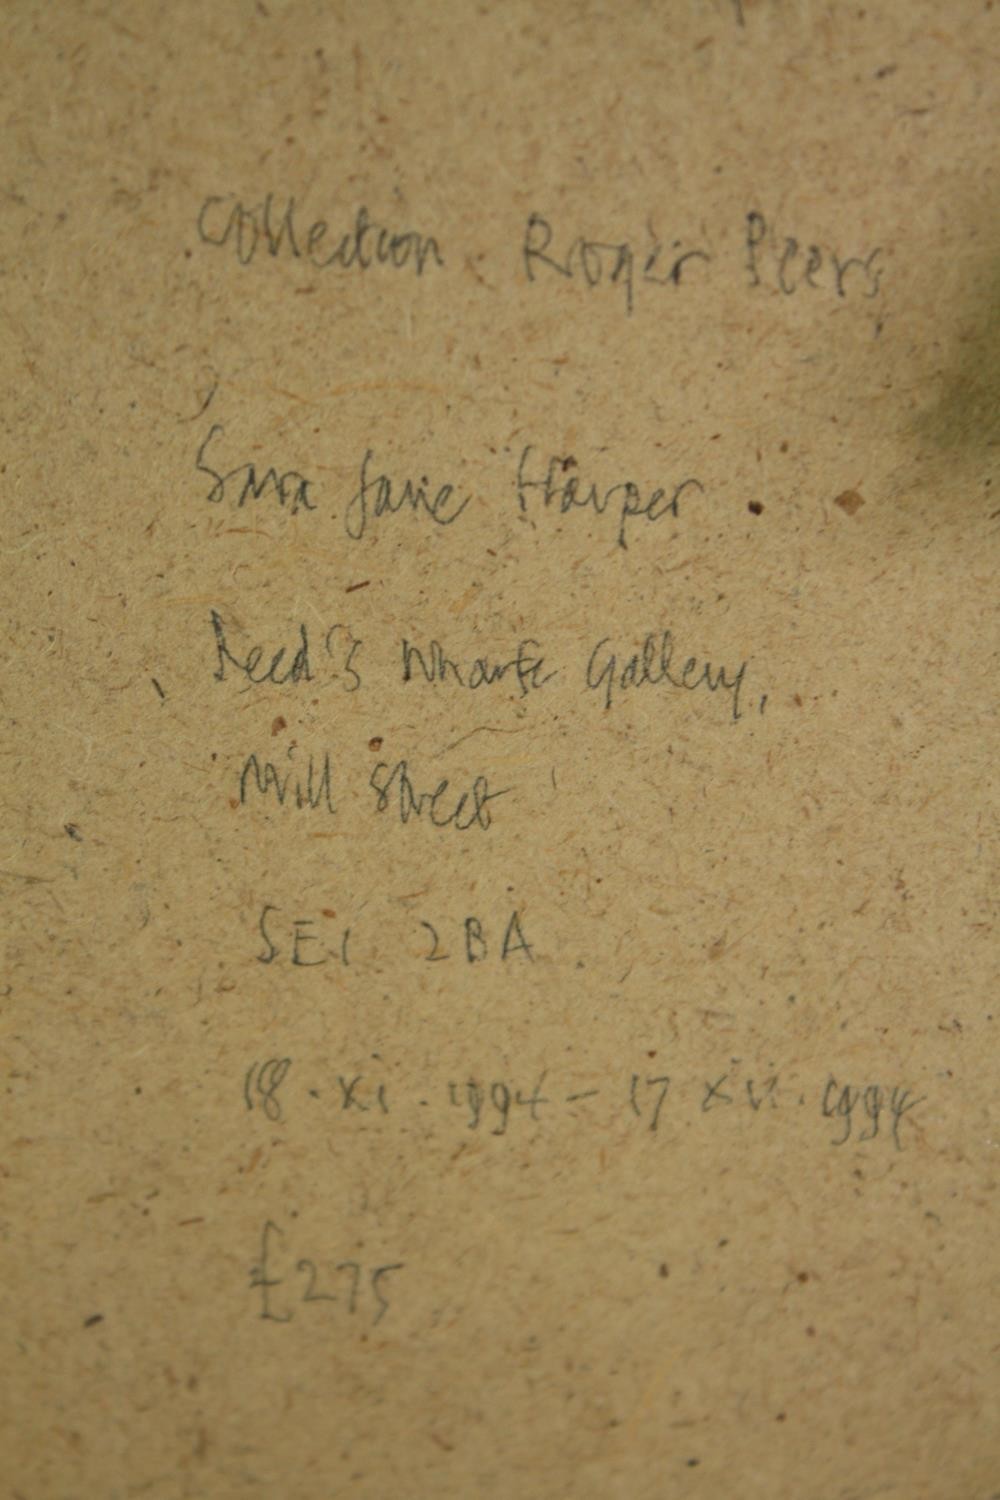 Collection Roger Peers
Sara Jane Harper.
Reed's Wharf Gallery,
Mill Street
SE1 2BA
18.xi.1994 - 17 xii.1994
£275